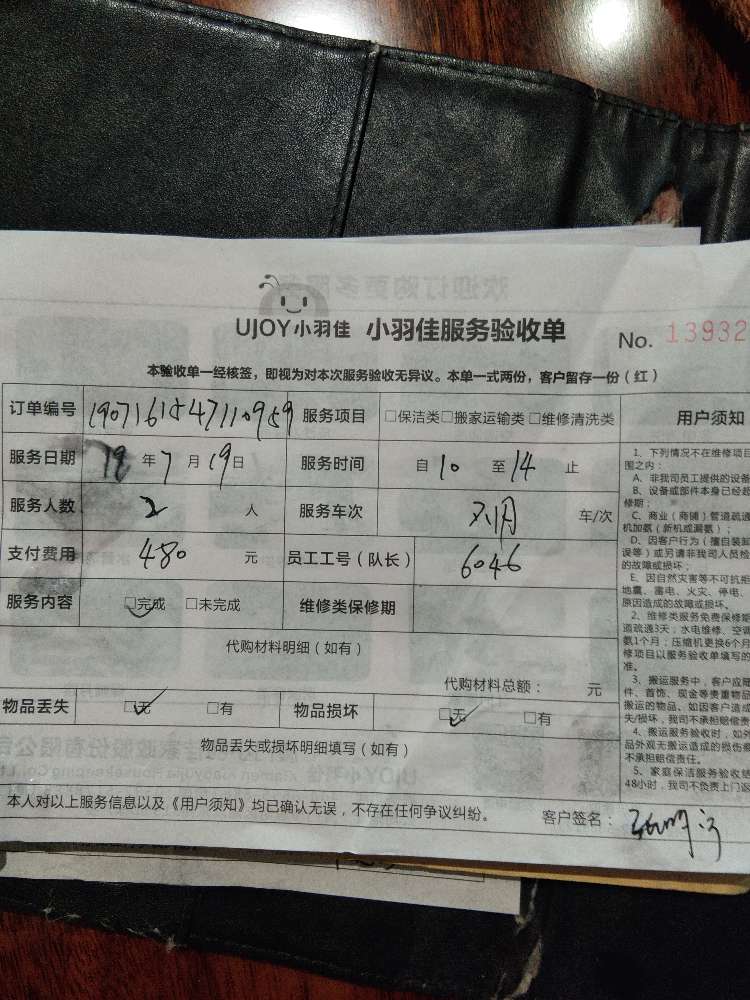 UJOY小羽佳 小羽佳服务验收单 No. 13932
本验收单一经核签，即视为对本次服务验收无异议。本单一式两份，客户留存一份（红）
订单编号 1907161547110959 服务项目 □保洁类□搬家运输类□维修清洗类
服务日期 19 年 7 月 19 日 服务时间 自 10 至 14 止
服务人数 2 人 服务车次 车/次
支付费用 480 元 员工工号（队长） 6046
服务内容 □完成 □未完成 维修类保修期
代购材料明细（如有）
代购材料总额： 元
物品丢失 □无 □有 物品损坏 □无 □有
物品丢失或损坏明细填写（如有）
本人对以上服务信息以及《用户须知》均已确认无误，不存在任何争议纠纷。 客户签名：
用户须知
1、下列情况不在维修项目
围之内：
A、非我司员工提供的设备
B、设备或部件本身已经超
修期；
C、商业（商铺）管道疏通
机加氨（新机或漏氨）；
D、因客户行为（擅自装卸
误等）或另请非我司人员检
的故障或损坏；
E、因自然灾害等不可抗拒
地震、雷电、火灾、停电、
原因造成的故障或损坏。
2、维修类服务免费保修期
道疏通3天；水电维修、空调
氨1个月；压缩机更换6个月
修项目以服务验收单填写的
准。
3、搬运服务中，客户应随
件、首饰、现金等贵重物品
搬运的物品。如因客户造成
失/损坏，我司不承担赔偿责
4、搬运服务验收时，如外
品外观无搬运造成的损伤
不承担赔偿责任。
5、家庭保洁服务验收结
48小时，我司不负责上门返